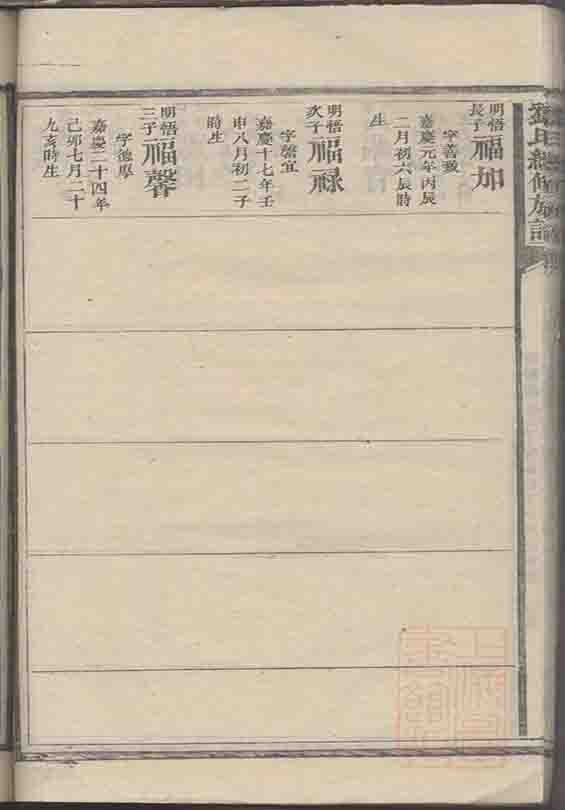 劉氏續修族譜
明悟
長子
福加
字善致
嘉慶元年丙辰
二月初六辰時
生
明悟
次子
福祿
字馨宜
嘉慶十七年壬
申八月初二子
時生
明悟
三子
福馨
字德厚
嘉慶二十四年
己卯七月二十
九亥時生